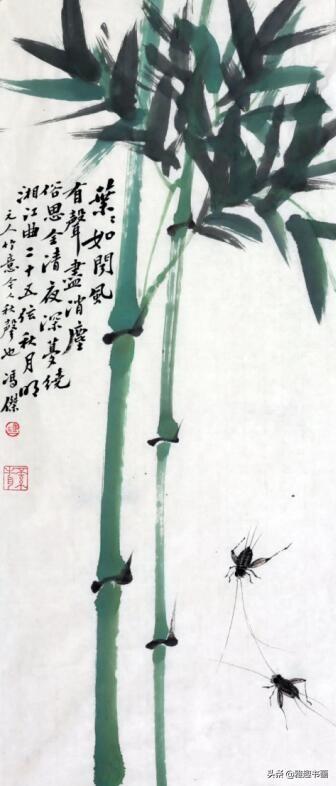 葉々如聞風
有聲盡消塵
俗思全清夜深夢繞
湘江曲二十五弦秋月明
元人竹意今人秋聲也 馮傑
头条 @雅趣书画